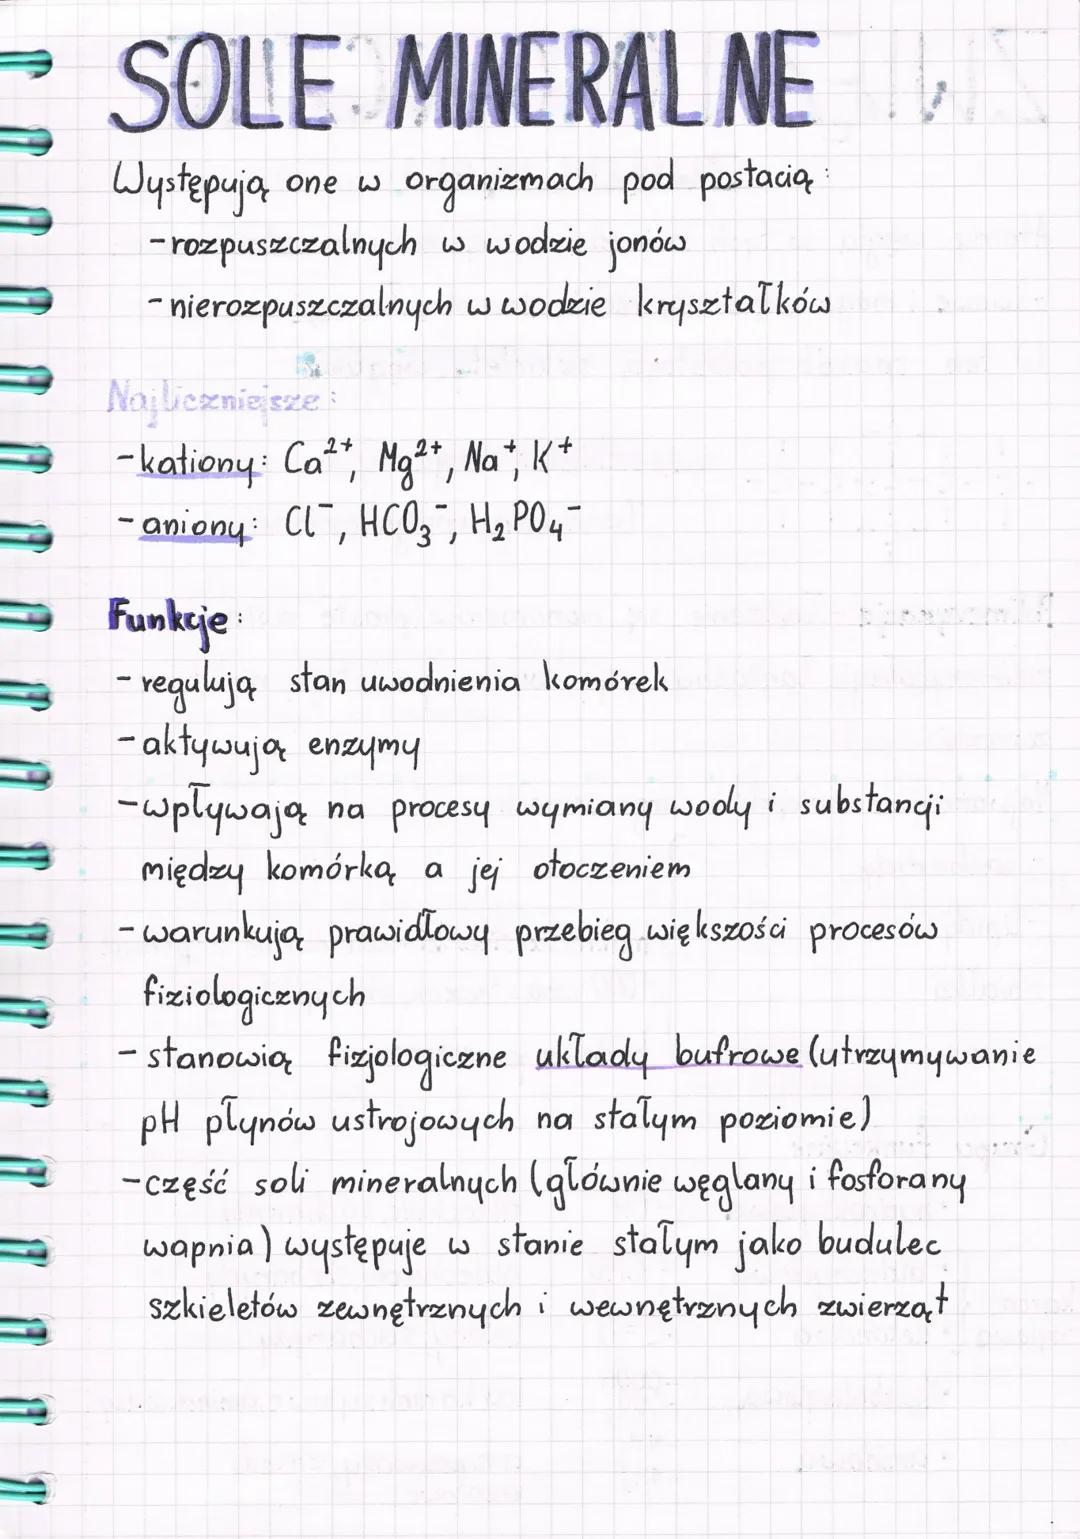 SOLE MINERALNE
Występują one w organizmach pod postacią:
-rozpuszczalnych w wodzie jonów
-nierozpuszczalnych w wodzie kryształków
Najliczniejsze:
-kationy: Ca²⁺, Mg²⁺, Na⁺, K⁺
-aniony: Cl⁻, HCO₃⁻, H₂PO₄⁻
Funkcje:
-regulują stan uwodnienia komórek
-aktywują enzymy
-wpływają na procesy wymiany wody i substancji
między komórką a jej otoczeniem
-warunkują prawidłowy przebieg większości procesów
fiziologicznych
-stanowią fizjologiczne układy bufrowe (utrzymywanie
pH płynów ustrojowych na stałym poziomie)
-część soli mineralnych (głównie węglany i fosforany
wapnia) występuje w stanie stałym jako budulec
szkieletów zewnętrznych i wewnętrznych zwierząt